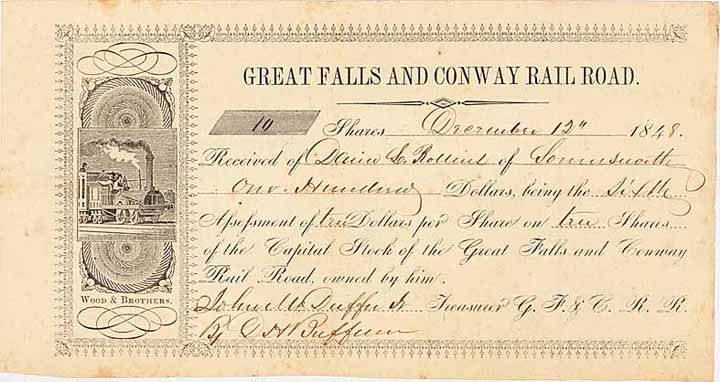 GREAT FALLS AND CONWAY RAIL ROAD.
10 Shares December 12" 1848.
Received of L. Rollins of Somersworth
One Hundred Dollars, being the sixth
Assessment of ten Dollars per Share on ten Shares
of the Capital Stock of the Great Falls and Conway
Rail Road, owned by him.
John McDuffee Jr. Treasurer G. F. & C. R. R.
By D H Buffum
WOOD & BROTHERS.